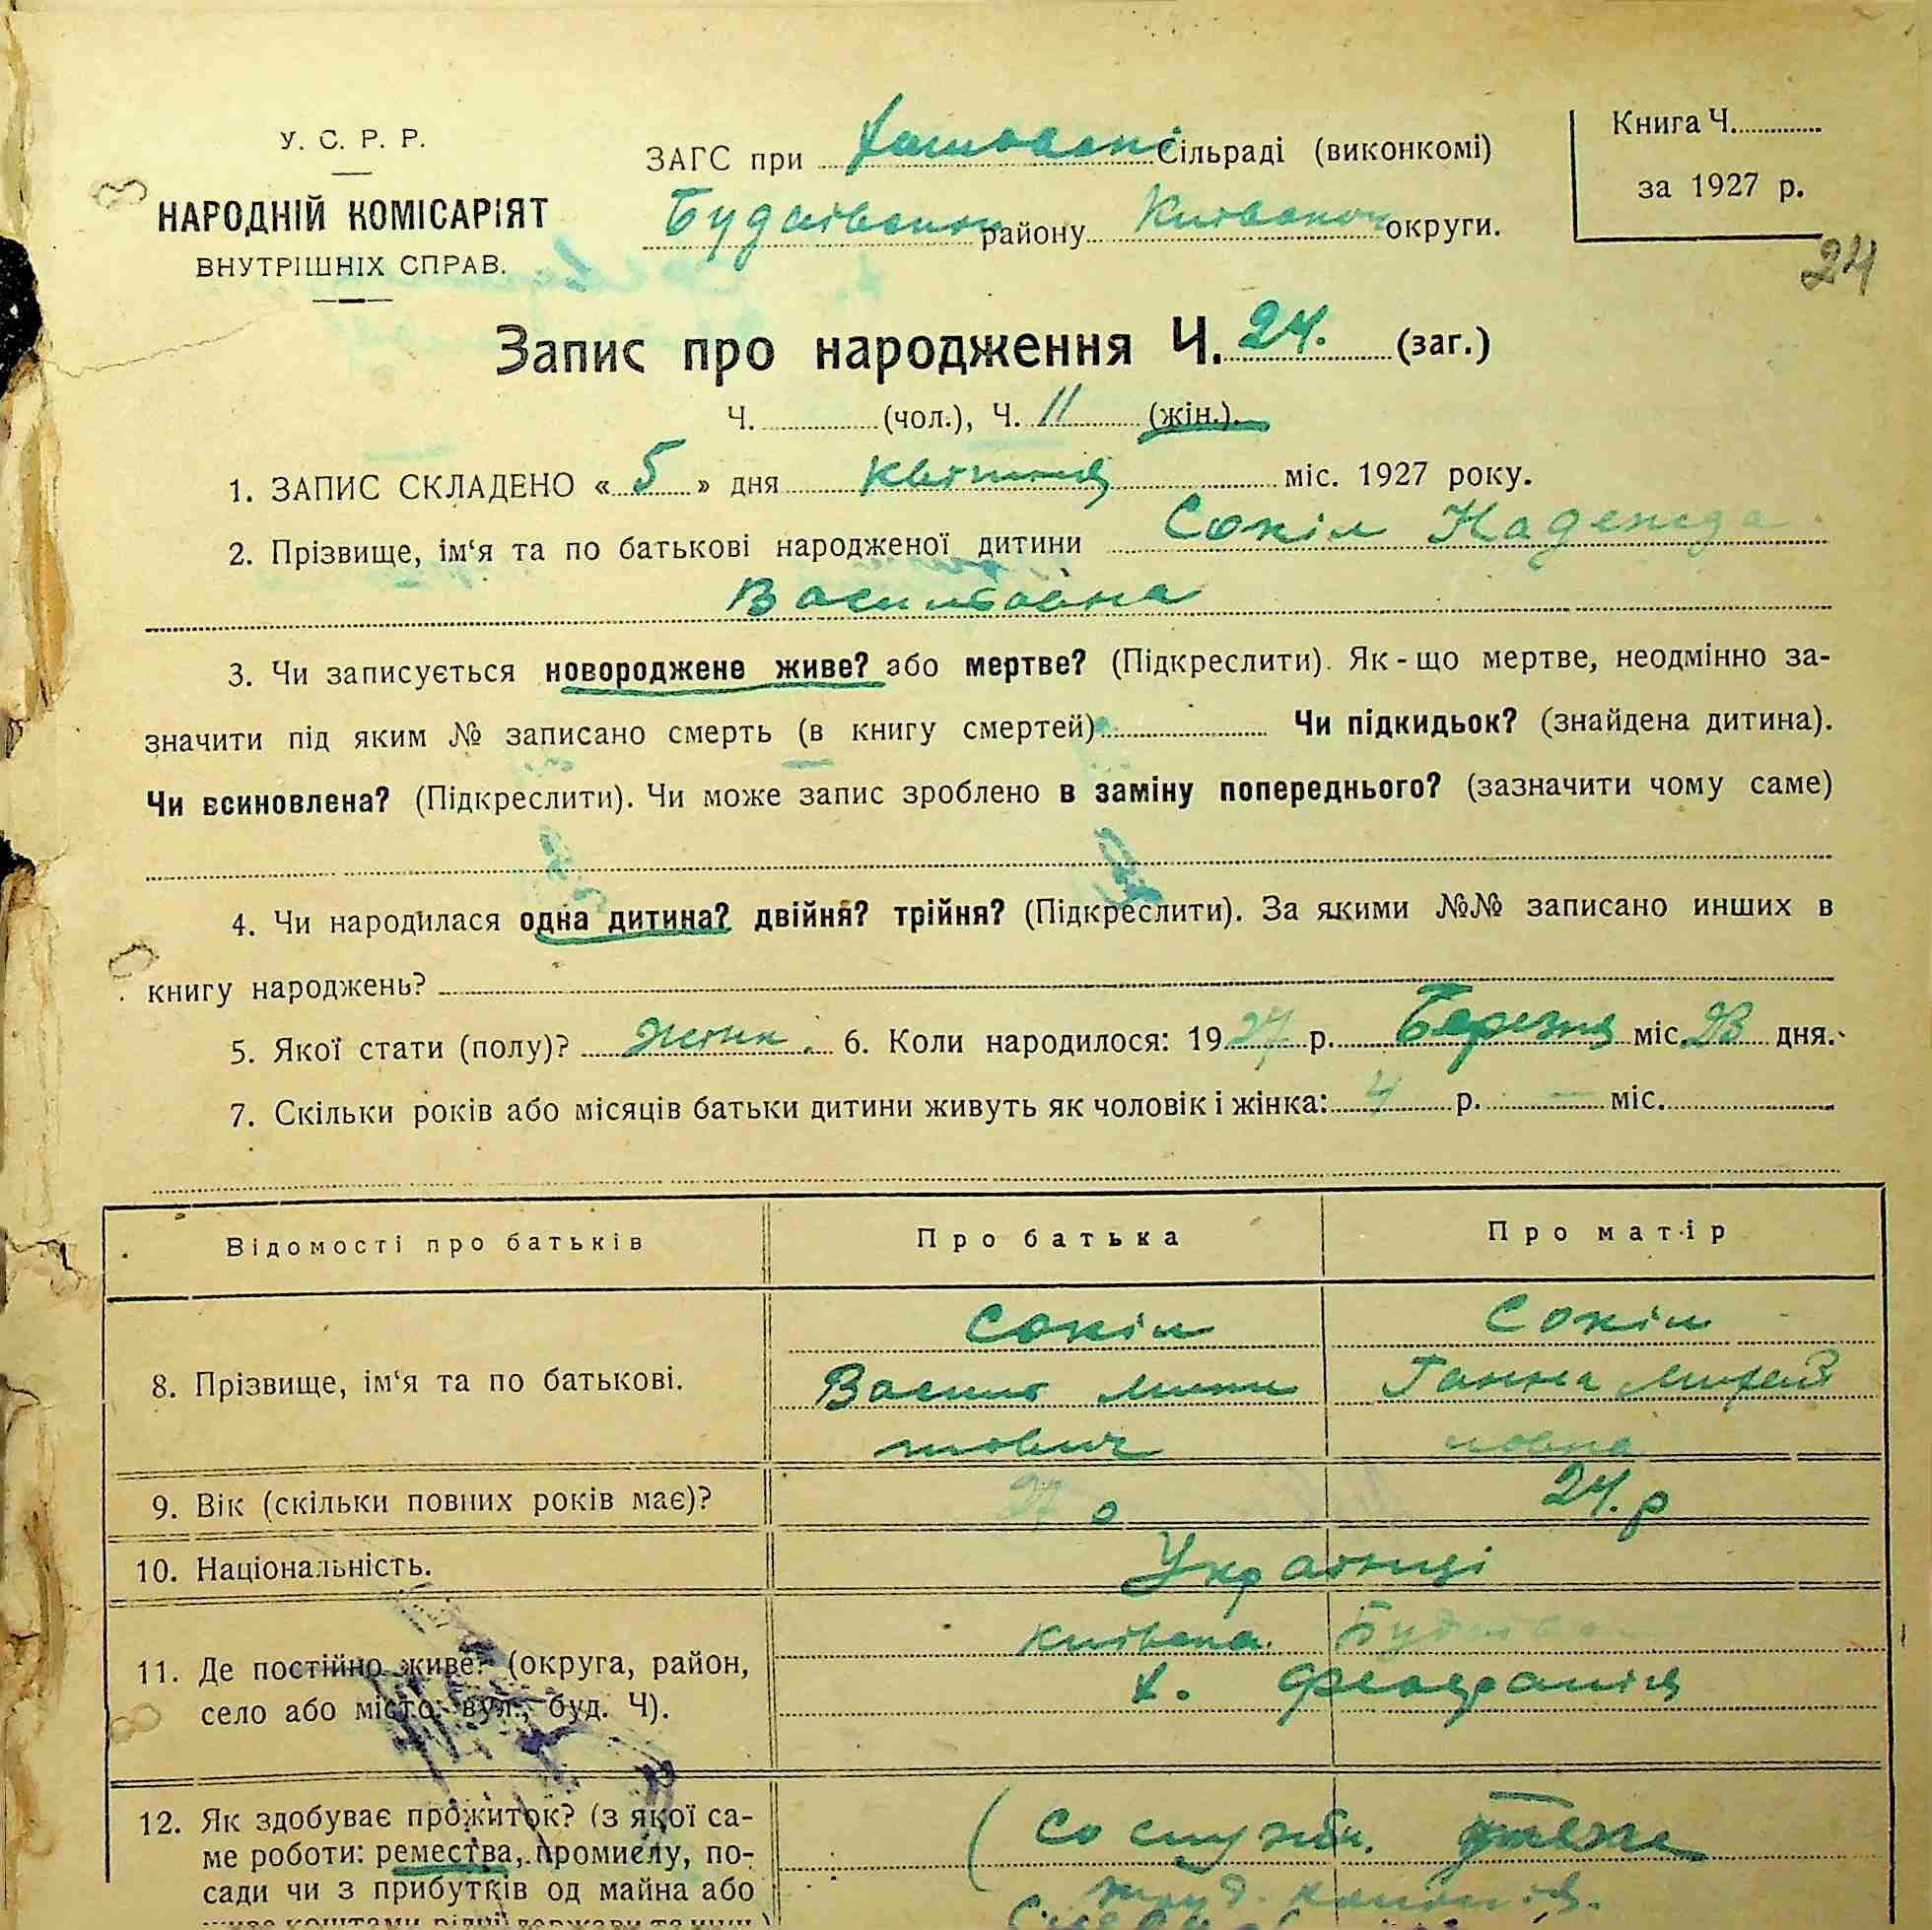 У. С. Р. Р.
НАРОДНІЙ КОМІСАРІЯТ
ВНУТРІШНІХ СПРАВ.
ЗАГС при Сільраді (виконкомі)
Будаївської району Київської округи.
Книга Ч.
за 1927 р.
24
Запис про народження Ч. 24. (заг.)
Ч. (чол.), Ч. 11 (жін.).
1. ЗАПИС СКЛАДЕНО « 5 » дня квітня міс. 1927 року.
2. Прізвище, ім‘я та по батькові народженої дитини Сокіл Надежда
Васильовна
3. Чи записується новороджене живе? або мертве? (Підкреслити). Як-що мертве, неодмінно за-
значити під яким № записано смерть (в книгу смертей) Чи підкидьок? (знайдена дитина).
Чи всиновлена? (Підкреслити). Чи може запис зроблено в заміну попереднього? (зазначити чому саме)
4. Чи народилася одна дитина? двійня? трійня? (Підкреслити). За якими №№ записано инших в
книгу народжень?
5. Якої стати (полу)? жіноч. 6. Коли народилося: 1927 р. Березня міс. 23 дня.
7. Скільки років або місяців батьки дитини живуть як чоловік і жінка: 4 р. — міс.
Відомості про батьків Про батька Про матір
8. Прізвище, ім‘я та по батькові.
Сокіл Сокіл
Василь Мики Ганна Михай
тович ловна
9. Вік (скільки повних років має)? 27 24. р
10. Національність. Українці
11. Де постійно живе? (округа, район,
село або місто, вул., буд. Ч).
Київська Будаївс
х. Феофанія
12. Як здобуває прожиток? (з якої са-
ме роботи: ремества, промислу, по-
сади чи з прибутків од майна або
живе коштами рідні, держави та инш.)
со служби. теже